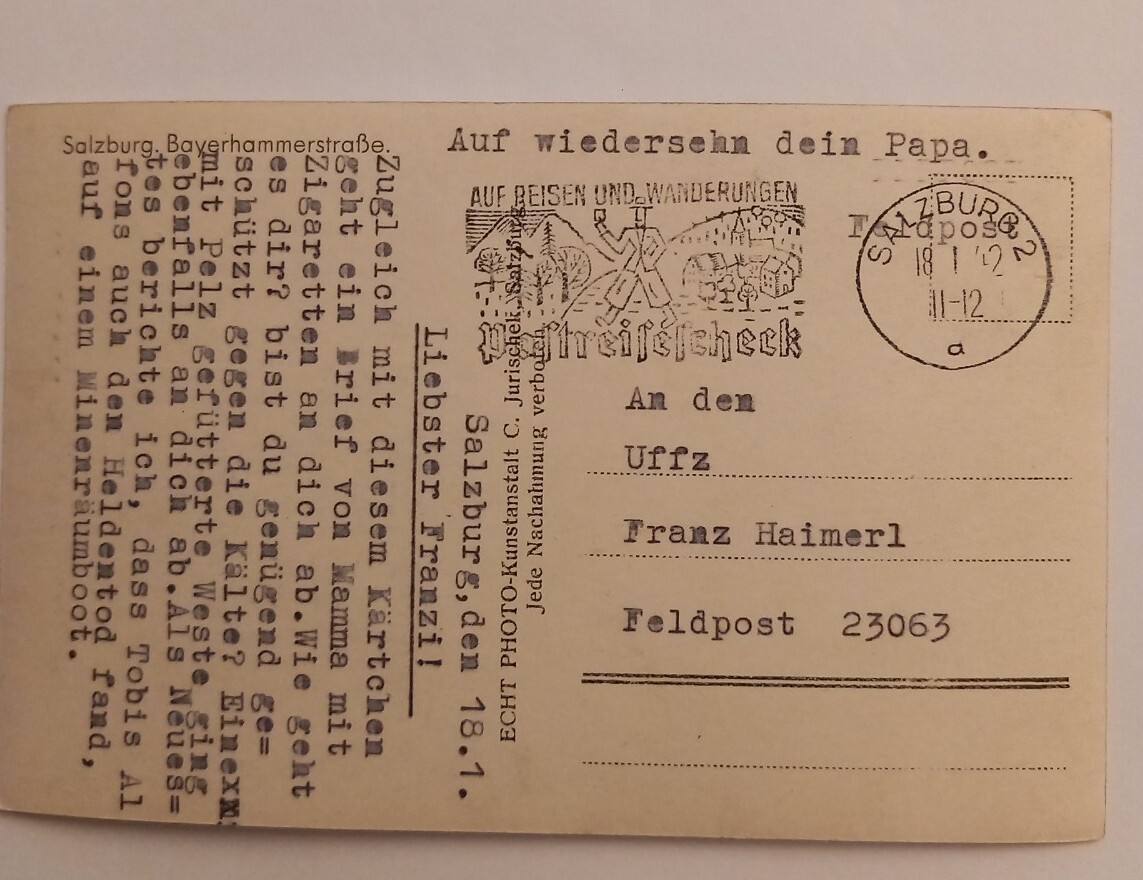 Salzburg. Bayerhammerstraße.
Auf wiedersehn dein Papa.
AUF REISEN UND WANDERUNGEN
Postreisescheck
Feldpost
SALZBURG 2
18 1 42
11-12
a
Salzburg,den 18.1.
Liebster Franzi!
Zugleich mit diesem Kärtchen
geht ein Brief von Mamma mit
Zigaretten an dich ab.Wie geht
es dir? bist du genügend ge=
schützt gegen die Kälte? Eine
mit Pelz gefütterte Weste ging
ebenfalls an dich ab.Als Neues=
tes berichte ich, dass Tobis Al
fons auch den Heldentod fand,
auf einem Minenräumboot.
ECHT PHOTO-Kunstanstalt C. Jurischek, Salzburg
Jede Nachahmung verboten
An den
Uffz
Franz Haimerl
Feldpost 23063